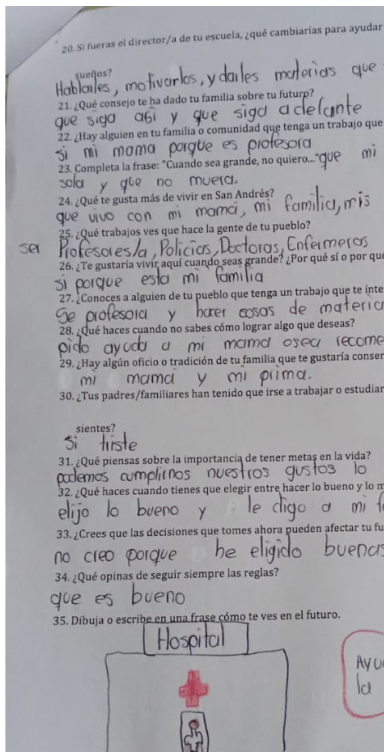 20. Si fueras el director/a de tu escuela, ¿qué cambiarías para ayudar
sueños?
Hablarles, motivarlos, y darles materias que
21. ¿Qué consejo te ha dado tu familia sobre tu futuro?
que siga asi y que siga adelante
22. ¿Hay alguien en tu familia o comunidad que tenga un trabajo que
si mi mama porque es profesora
23. Completa la frase: "Cuando sea grande, no quiero..." que mi
sola y que no muera.
24. ¿Qué te gusta más de vivir en San Andrés?
que vivo con mi mamá, mi familia, mis
25. ¿Qué trabajos ves que hace la gente de tu pueblo?
ser Profesores/a, Policías, Doctoras, Enfermeras
26. ¿Te gustaría vivir aquí cuando seas grande? ¿Por qué sí o por qu
si porque esta mi familia
27. ¿Conoces a alguien de tu pueblo que tenga un trabajo que te inte
Se profesora y hacer cosas de materia
28. ¿Qué haces cuando no sabes cómo lograr algo que deseas?
pido ayuda a mi mama osea recome
29. ¿Hay algún oficio o tradición de tu familia que te gustaría conser
mi mama y mi prima.
30. ¿Tus padres/familiares han tenido que irse a trabajar o estudiar
sientes?
Si triste
31. ¿Qué piensas sobre la importancia de tener metas en la vida?
podemos cumplirnos nuestros gustos lo
32. ¿Qué haces cuando tienes que elegir entre hacer lo bueno y lo m
elijo lo bueno y le digo a mi
33. ¿Crees que las decisiones que tomes ahora pueden afectar tu fu
no creo porque he eligido buenas
34. ¿Qué opinas de seguir siempre las reglas?
que es bueno
35. Dibuja o escribe en una frase cómo te ves en el futuro.
Hospital
Ayu
la